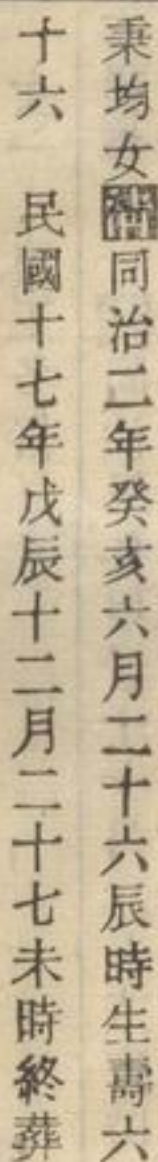 秉均女同治二年癸亥六月二十六辰時生壽六
十六 民國十七年戊辰十二月二十七未時終葬